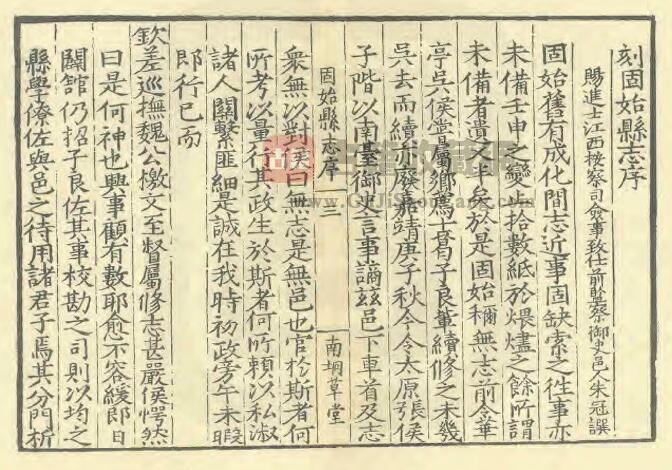 刻固始縣志序
賜進士江西按察司僉事致仕前監察御史邑人朱冠譔
固始舊有成化間志近事固缺索之往事亦
未備壬申之變占拾數紙於煨燼之餘所謂
未備者遺又半矣於是固始稱無志前令華
亭吳侯嘗屬鄉薦士胥子良輩續修之未幾
吳去而續亦廢嘉靖庚子秋今令太原張侯
子階以南臺御史言事謫茲邑下車首及志
固始縣志序 三 南埛草堂
衆無以對侯曰無志是無邑也官於斯者何
所考以量行其政生於斯者何所賴以私淑
諸人關繫匪細是誠在我時初政旁午未暇
即行已而
欽差巡撫魏公檄文至督屬修志甚嚴侯愕然
曰是何神也興事顧有數耶愈不容緩即日
闢舘仍招子良佐其事校勘之司則以均之
縣學僚佐與邑之待用諸君子焉其分門析
古
www.GuJiShouCang.com